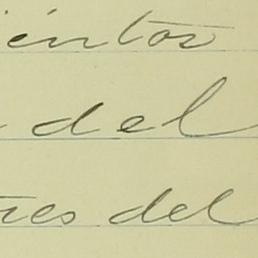 ientos
del
res del